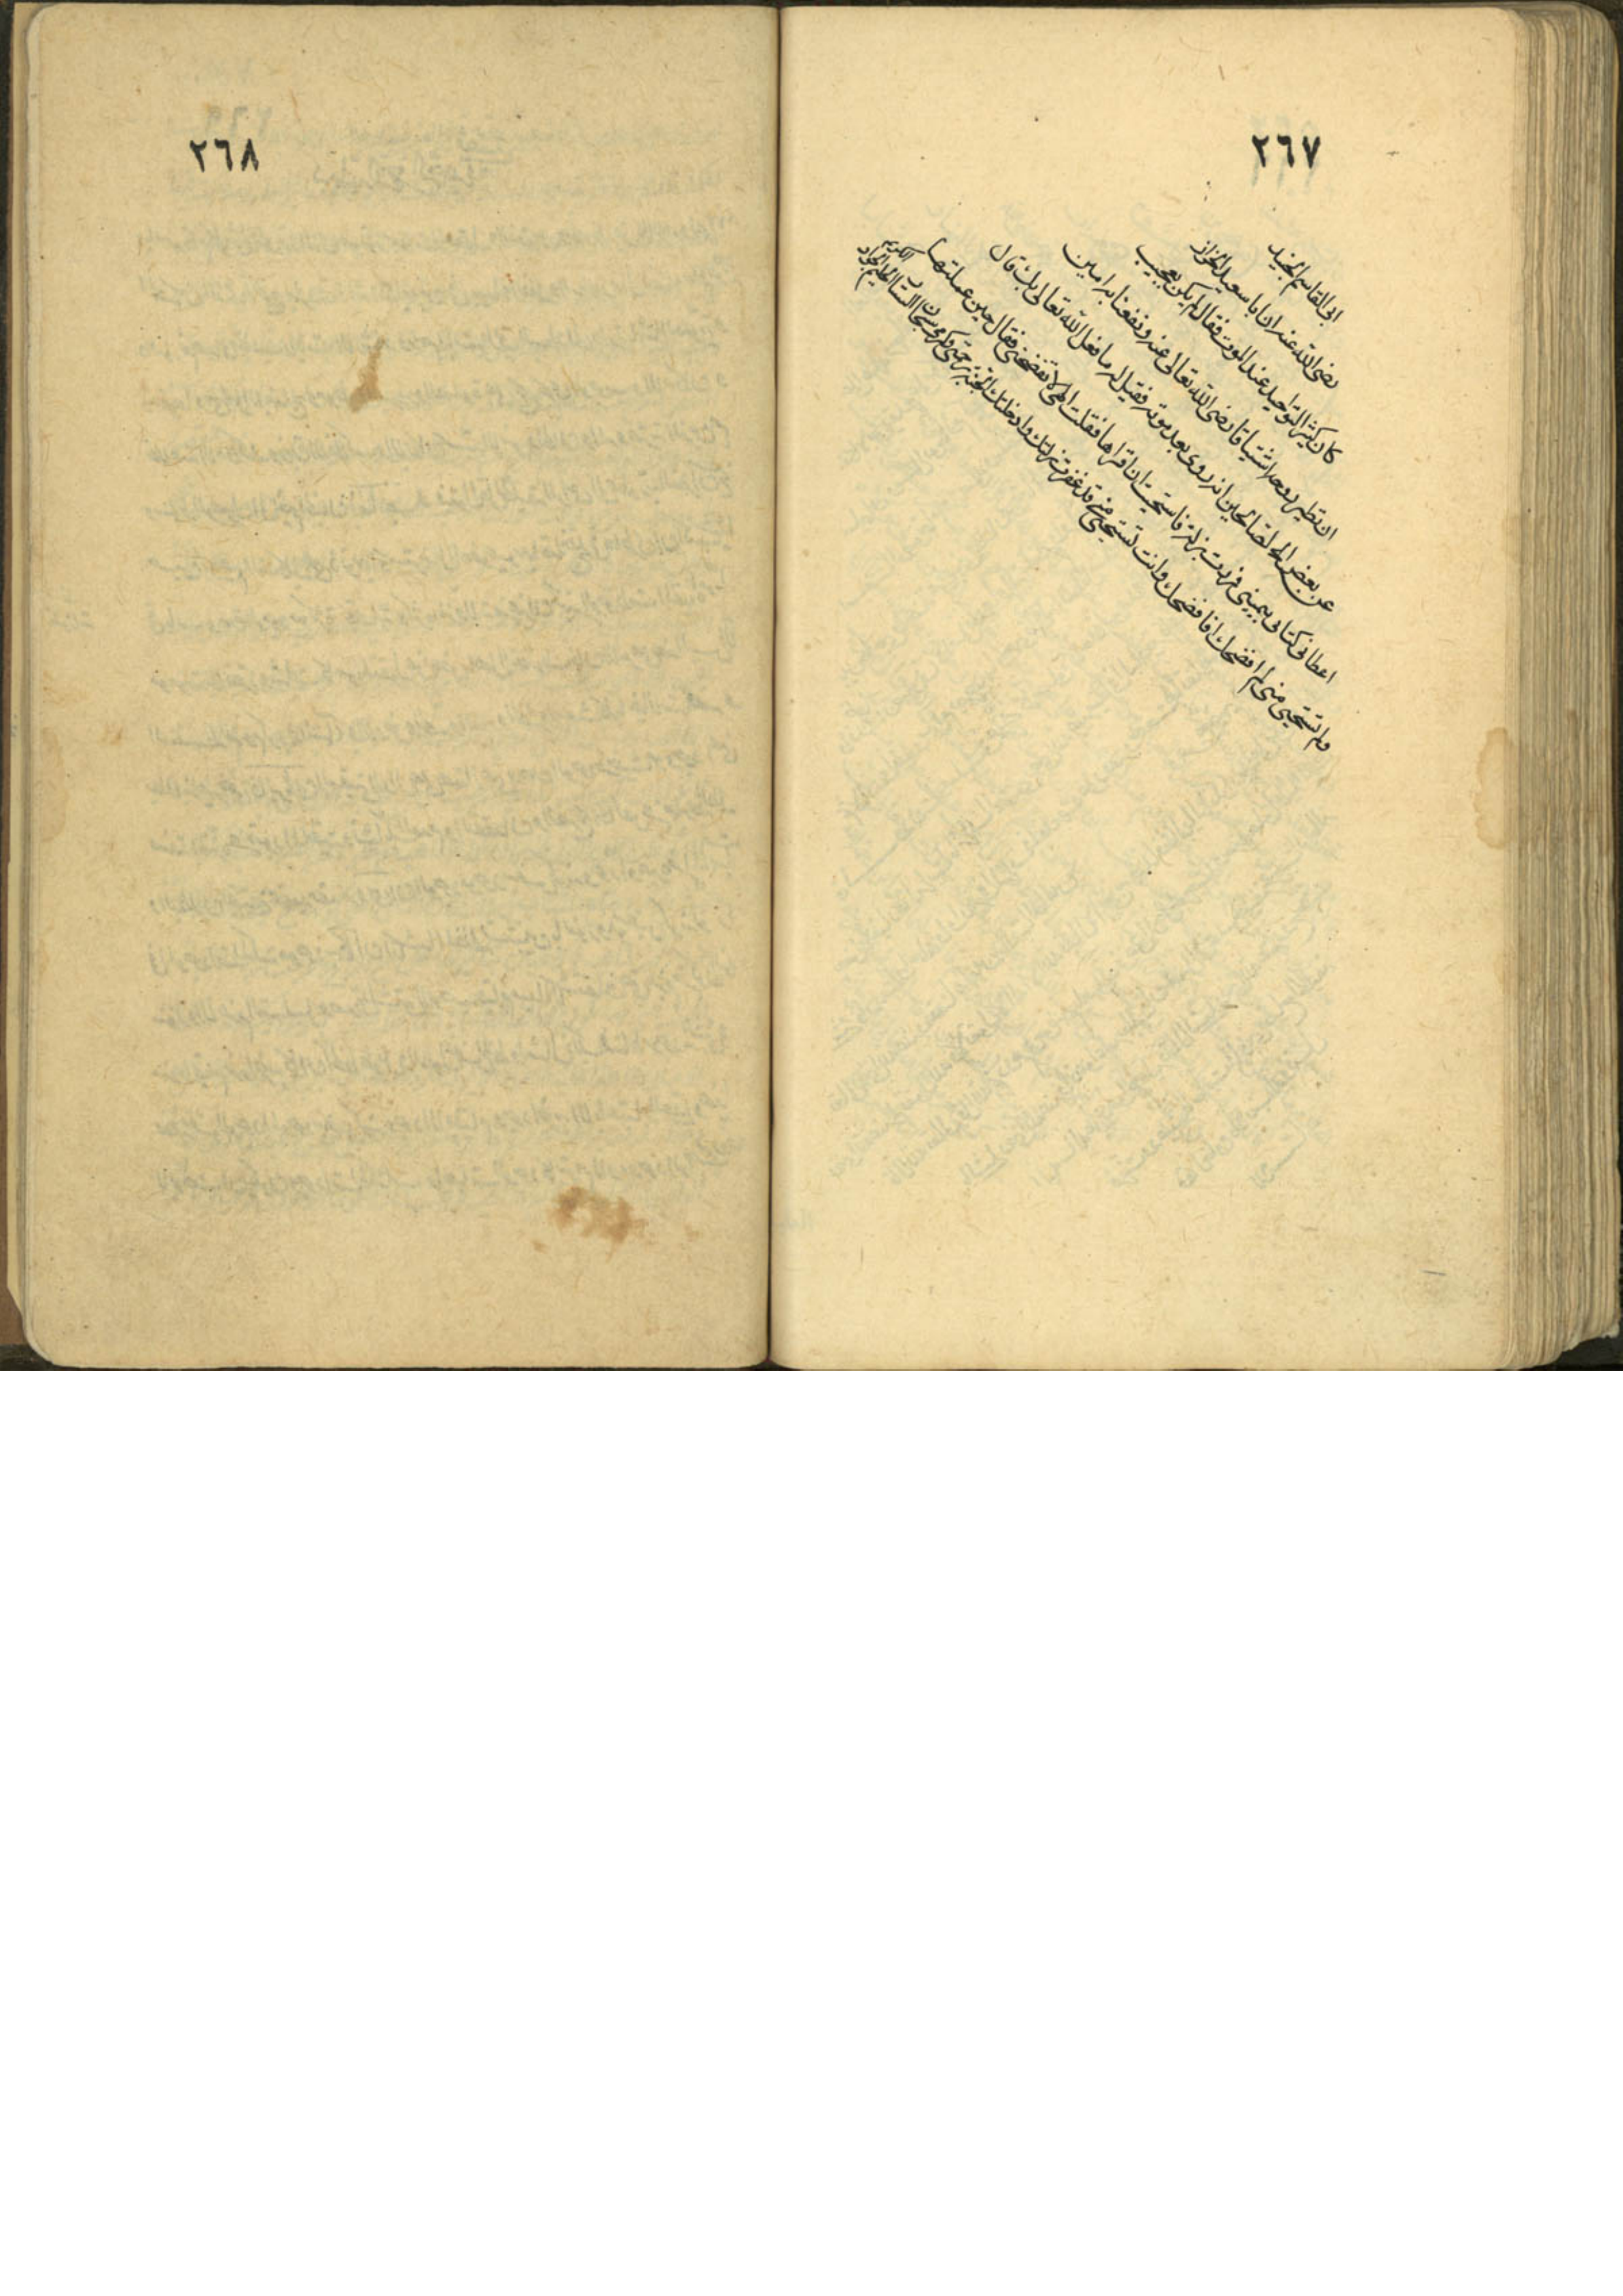 ٢٦٧
ابى القاسم الجنيد
رضى الله عنه ان ابا سعيد الخراز
كان كثير التواجد عند الموت فقال لم يكن بعجيب
ان تطير روحه اشتياقا رضى الله تعالى عنه ونفعنا به امين
عن بعض الصالحين انه روى بعد موته فقيل له ما فعل الله تعالى بك قال
اعطانى كتابى بيمينى فمررت بزلة فاستحييت ان اقراها فقلت الهى لا تفضحنى فقال حين عملتها
ولم تستحيى منى لم افضحك افافضحك وانت تستحيى منى قد غفرت زلتك وادخلتك الجنة برحمتى وكرمى سبحان الستار الحليم الجواد الكريم
٢٦٨